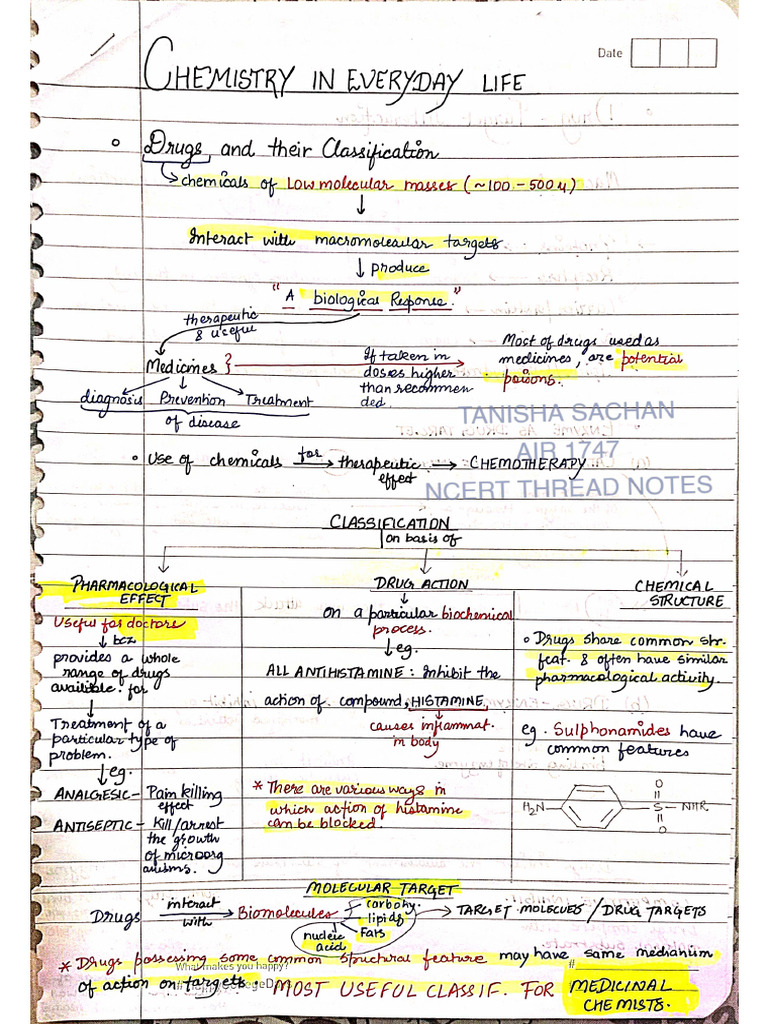 Date
CHEMISTRY IN EVERYDAY LIFE
Drugs and their Classification
chemicals of Low molecular masses (~100-500u)
Interact with macromolecular targets
produce
"A biological Response."
therapeutic
& useful
Medicines }
If taken in
doses higher
than recommen
ded.
Most of drugs used as
medicines, are potential
poisons.
diagnosis Prevention Treatment
of disease
TANISHA SACHAN
AIR 1747
NCERT THREAD NOTES
Use of chemicals for therapeutic effect → CHEMOTHERAPY
CLASSIFICATION
on basis of
PHARMACOLOGICAL
EFFECT
Useful for doctors
bcz
provides a whole
range of drugs
available for
Treatment of a
particular type of
problem.
eg.
ANALGESIC - Pain killing
effect
ANTISEPTIC - Kill/arrest
the growth
of microorg
anisms.
DRUG ACTION
on a particular biochemical
process.
eg.
ALL ANTIHISTAMINE: Inhibit the
action of compound, HISTAMINE
causes inflammat.
in body
* There are various ways in
which action of histamine
can be blocked.
CHEMICAL
STRUCTURE
Drugs share common str.
feat. & often have similar
pharmacological activity.
eg. Sulphonamides have
common features
H₂N
O
S
O
NHR.
MOLECULAR TARGET
Drugs interact with → Biomolecules
carbohy.
lipids
Fats
nucleic
acid
→ TARGET MOLECUES / DRUG TARGETS
* Drugs possessing some common structural feature may have same mechanism
What makes you happy?
of action on targets. MOST USEFUL CLASSIF. FOR MEDICINAL
CHEMISTS.
#